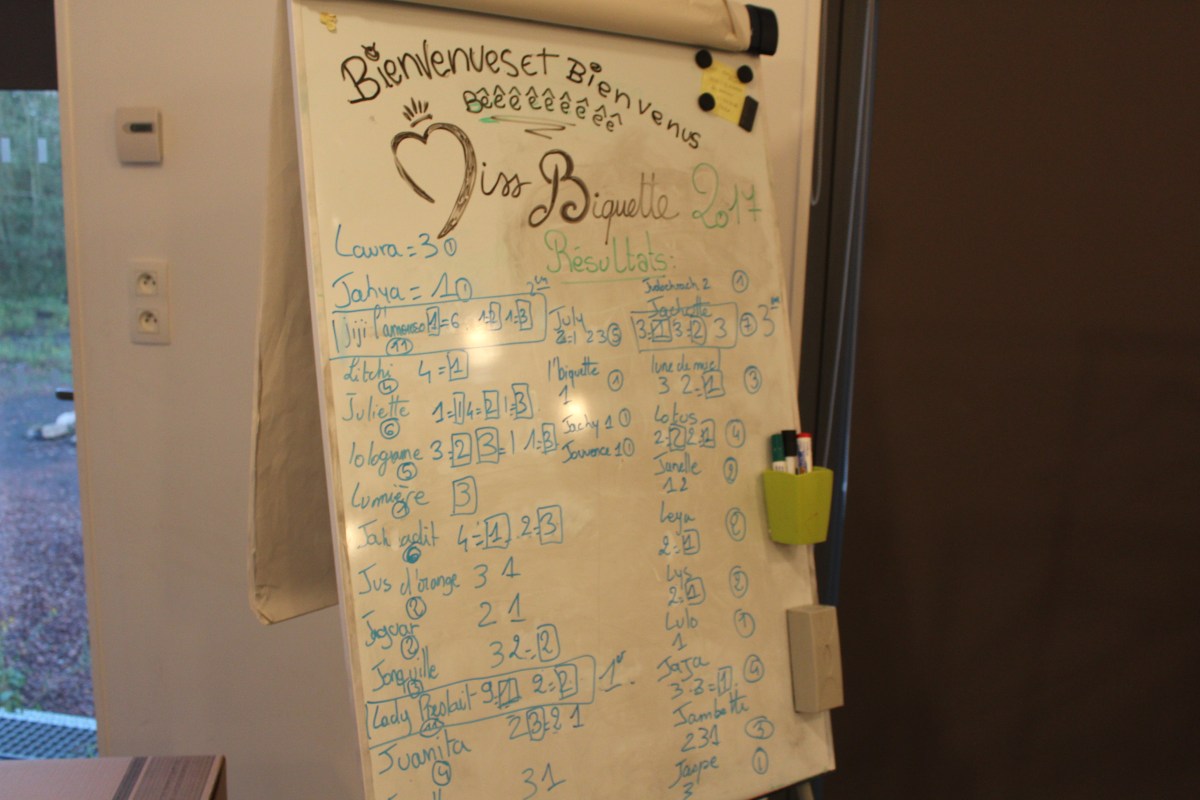 Bienvenues et Bienvenus
Bêêêêêêêêê
Miss Biquette 2017
Résultats:
Laura = 3 ①
Jahya = 1 ①
2
Jiji l'amoroso 1 = 6 1 = 2 1 = 3
11
Litchi 4 = 1
4
Juliette 1 = 1 4 = 2 1 = 3
6
lolograme 3 = 2 3 = 1 1 = 3
5
Lumière 3
Jah adit 4 = 1 2 = 3
6
Jus d'orange 3 1
2
Jaguar 2 1
2
Jonquille 3 2 = 2
3
Lady 9 = 1 2 = 2 1er
11
Juanita 2 3 = 2 1
4
3 1
July
2 = 1 2 3 ⑤
l'biquette ①
1
Jachy 1 ①
Jouvence 1 ①
2 ①
Jachette
3 = 1 3 = 2 3 ⑦ 3
lune de miel
3 2 = 1 ③
Lotus
④
Janelle ②
1 2
Leya ②
2 = 1
Lys ②
2 = 1
Lulo ①
1
JaJa ④
3 3 = 1
Jambette
2 3 1 ③
Jaspe ①
3